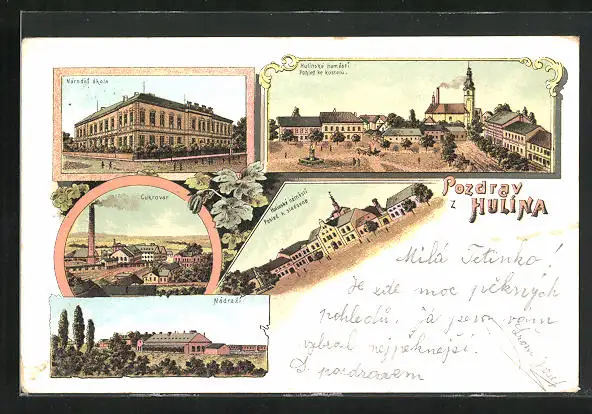 Národní škola
Hulínské náměstí
Pohled ke kostelu.
Cukrovar
Hulínské náměstí
Pohled k sladovně
Pozdrav
z HULÍNA
Nádraží
Milá Tetinko!
Je zde moc pěkných
pohledů. Já jsem vám
vybral nejpěknější.
S pozdravem